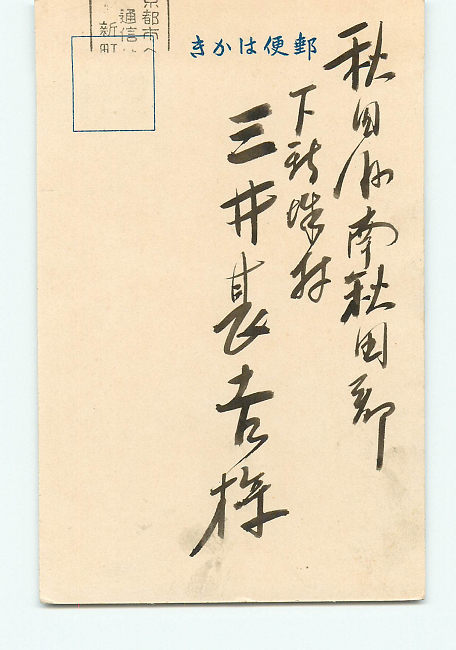 郵便はかき
秋田縣南秋田郡
下新城村
三井甚吉様
京都市へ
通信
新町